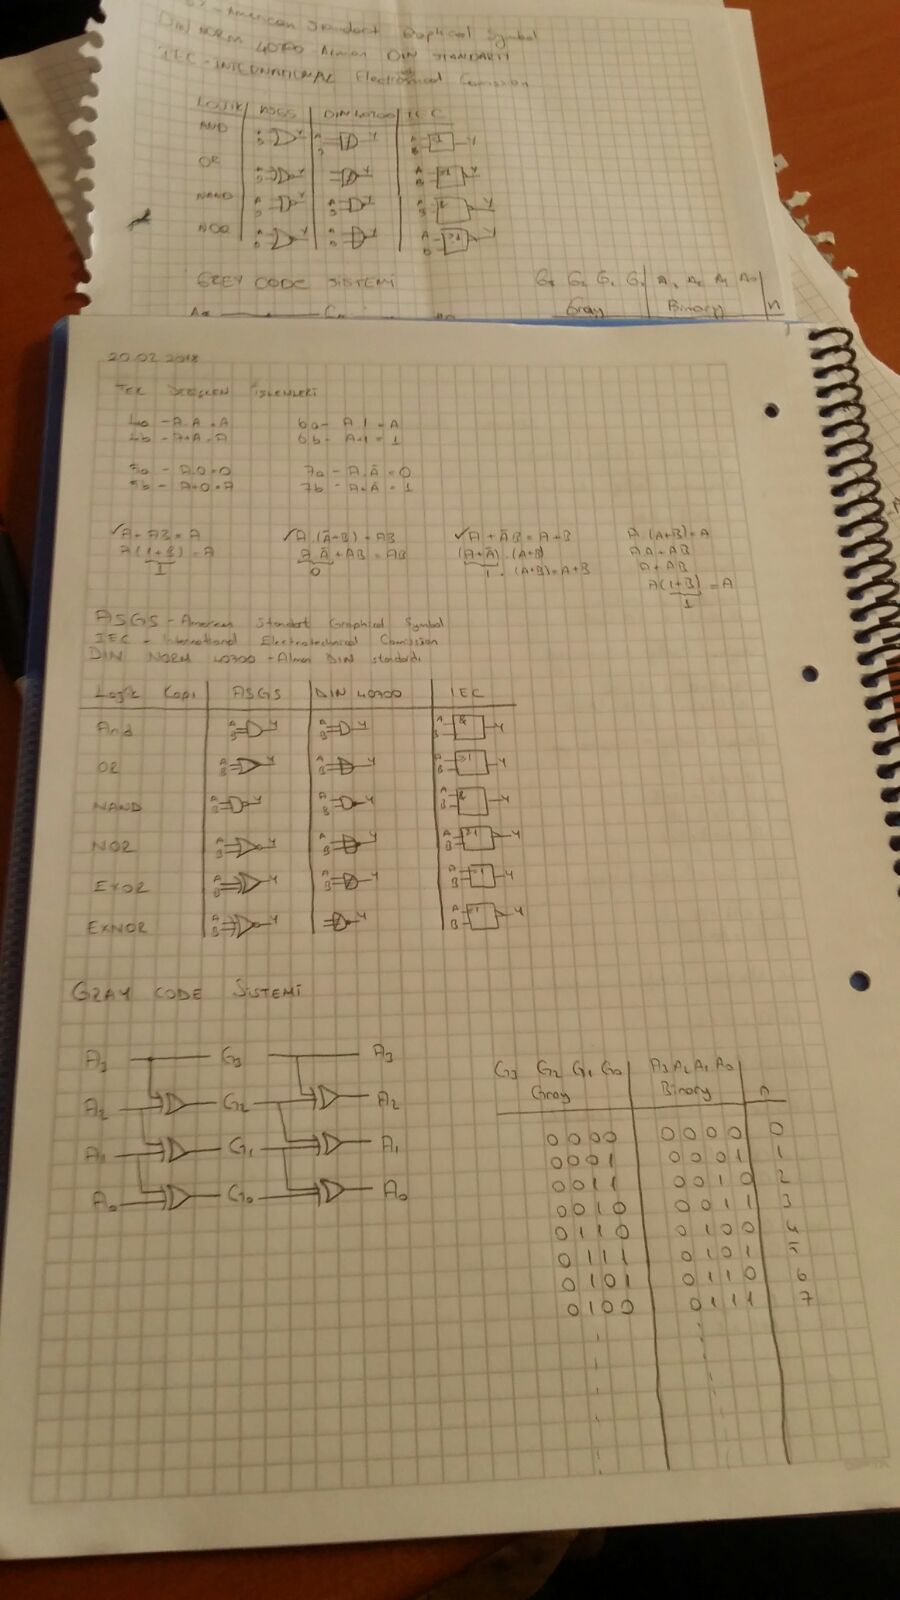 American Standart Graphical Symbol
DIN NORM 40700 Alman DIN STANDARTI
IEC - INTERNATIONAL Electronical Comission
LOJIK ASGS DIN 40700 IEC
AND
OR
NAND
NOR
GREY CODE SISTEMI
Gray Binary n
20.02.2018
TEK DEĞİŞKEN İŞLEMLERİ
4a - A.A=A 6a - A.1=A
4b - A+A=A 6b - A+1=1
5a - A.0=0 7a - A.Ā=0
5b - A+0=A 7b - A+Ā=1
✓A+AB=A ✓A.(Ā+B)=AB ✓A+ĀB=A+B A.(A+B)=A
A(1+B)=A AĀ+AB=AB (A+Ā).(A+B) AA+AB
1 0 1.(A+B)=A+B A+AB
A(1+B)=A
1
ASGS - American Standart Graphical Symbol
IEC - International Electrotechnical Comission
DIN NORM 40700 - Alman DIN standardı
Logic Kapı ASGS DIN 40700 IEC
And A B Y A B Y A B & Y
OR A B Y A B Y A B ≥1 Y
NAND A B Y A B Y A B & Y
NOR A B Y A B Y A B ≥1 Y
EXOR A B Y A B Y A B =1 Y
EXNOR A B Y Y A B =1 Y
GRAY CODE SİSTEMİ
A3 G3 A3
A2 G2 A2
A1 G1 A1
A0 G0 A0
G3 G2 G1 G0 A3 A2 A1 A0
Gray Binary n
0000 0000 0
0001 0001 1
0011 0010 2
0010 0011 3
0110 0100 4
0111 0101 5
0101 0110 6
0100 0111 7